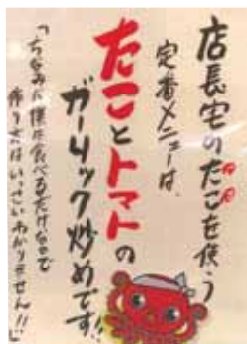 店長宅のたこを使う
定番メニューは、
たことトマトの
ガーリック炒めです!!
「ちなみに僕は食べるだけなので
作り方はいっさいわかりません!!」